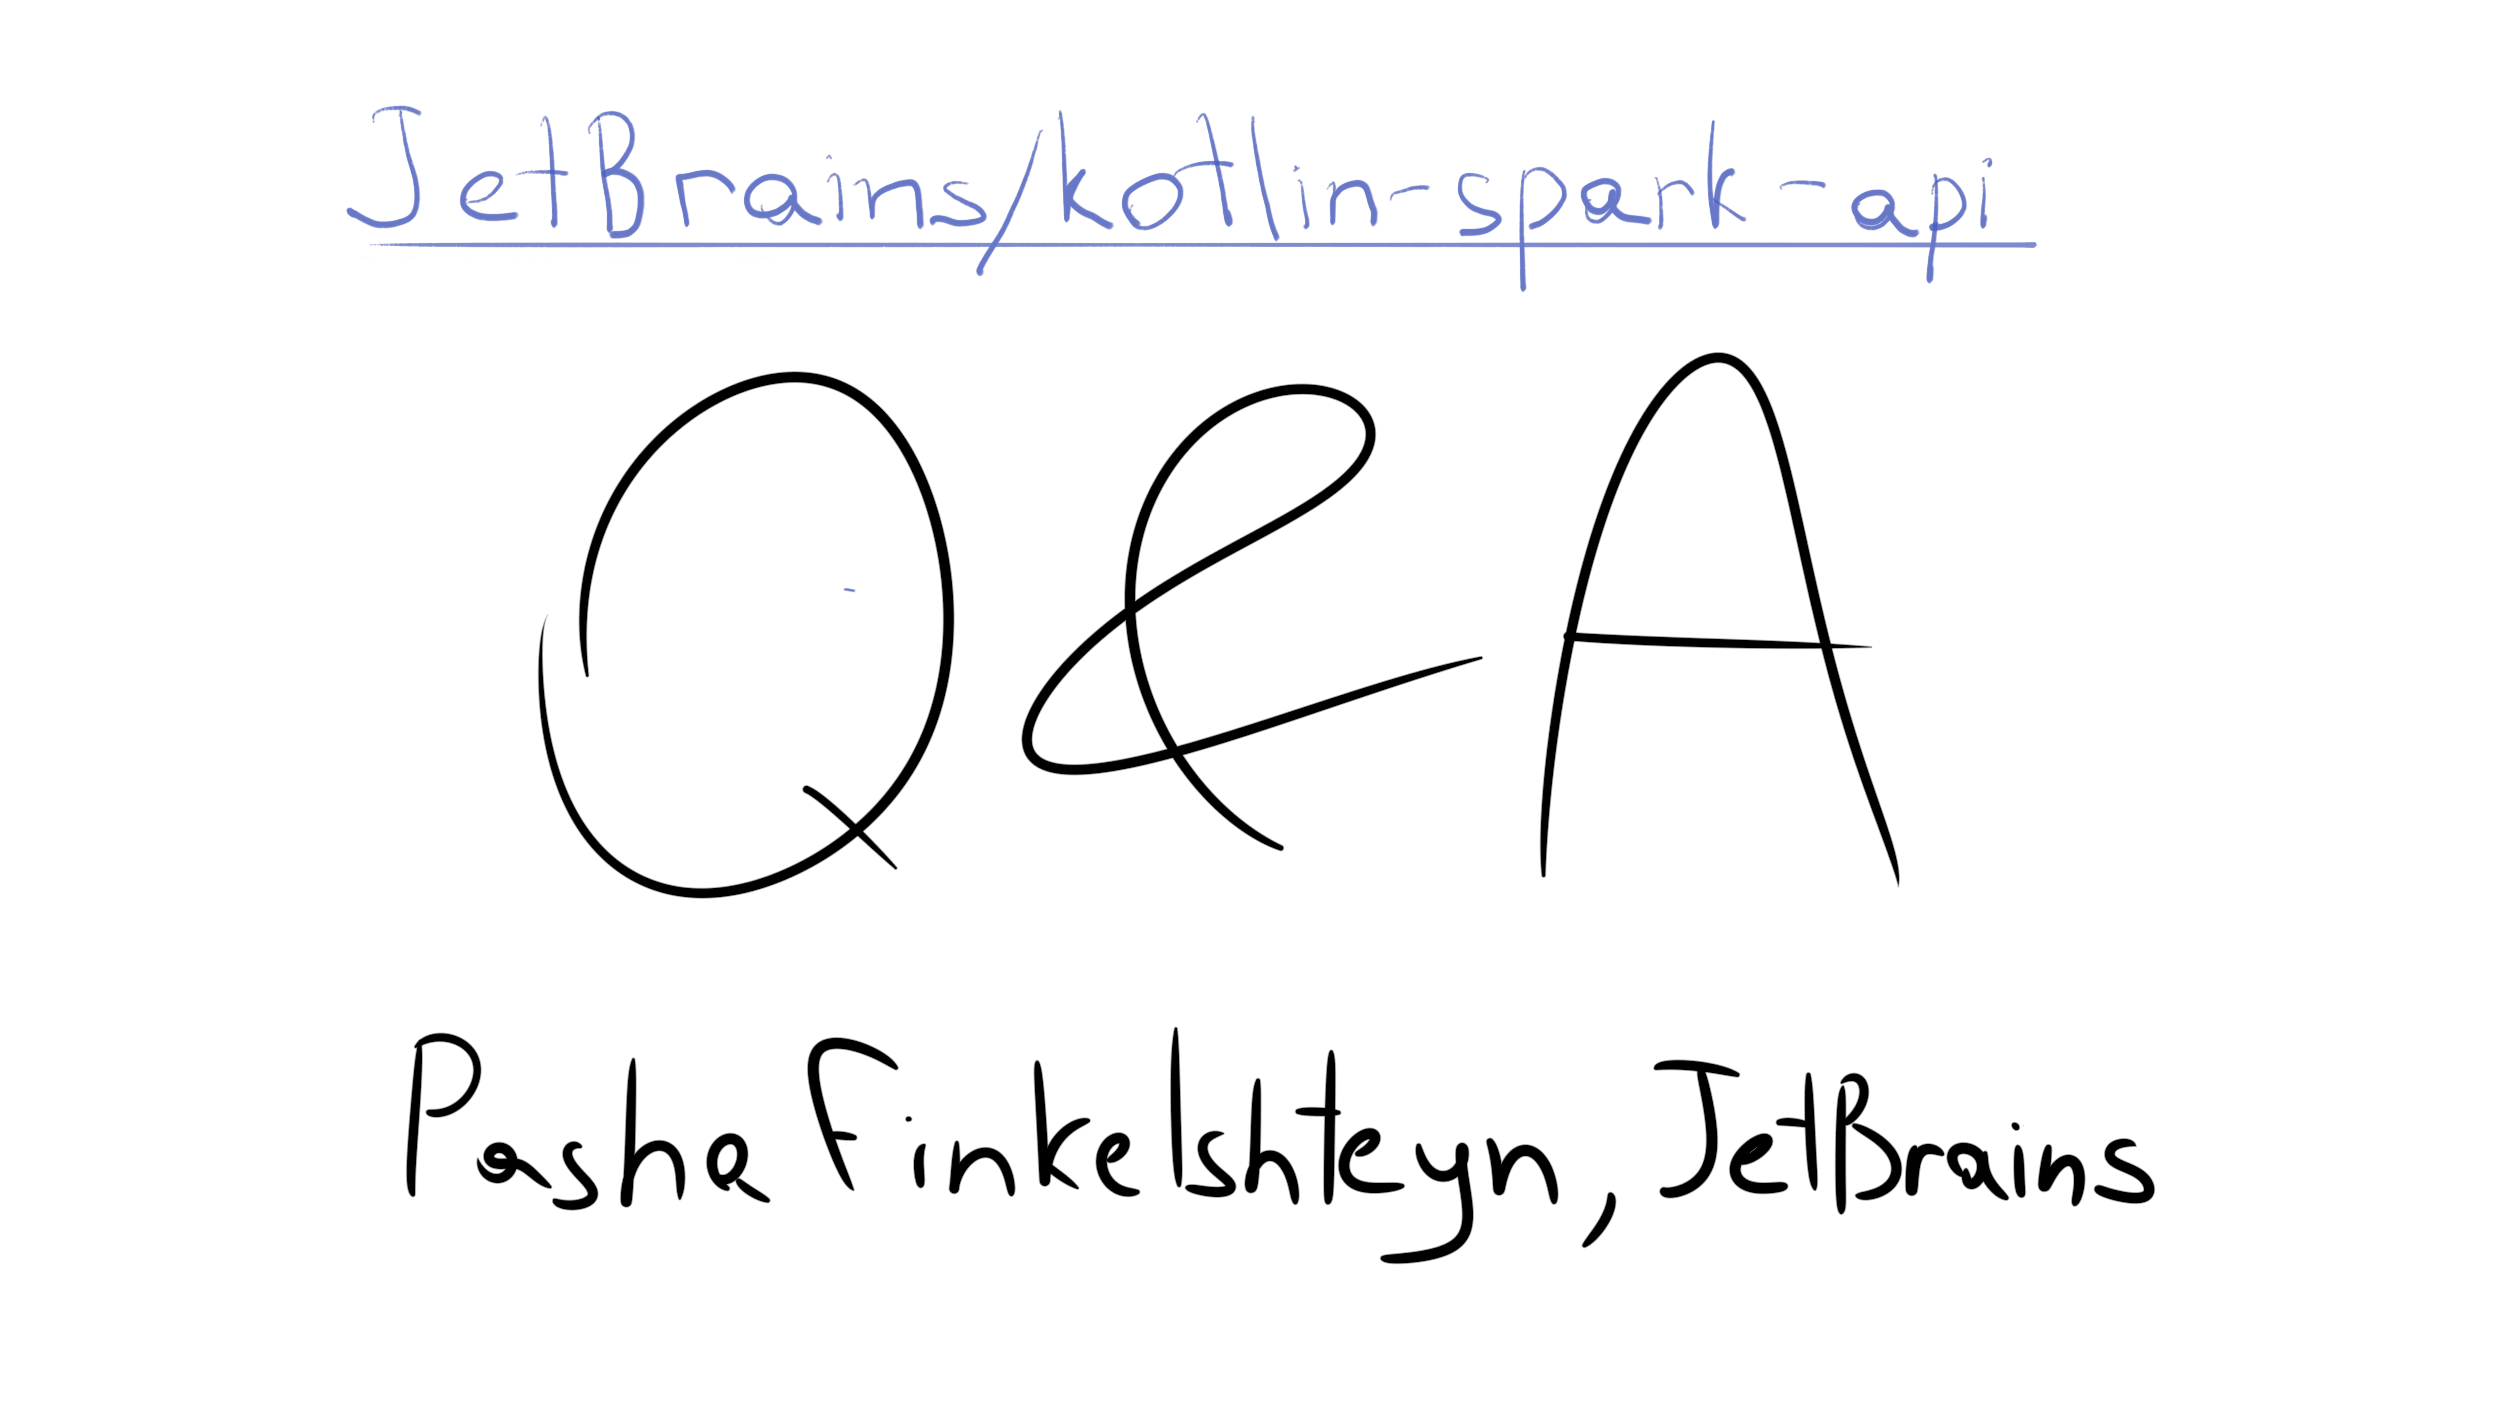 JetBrains/kotlin-spark-api
Q&A
Pasha Finkelshteyn, JetBrains